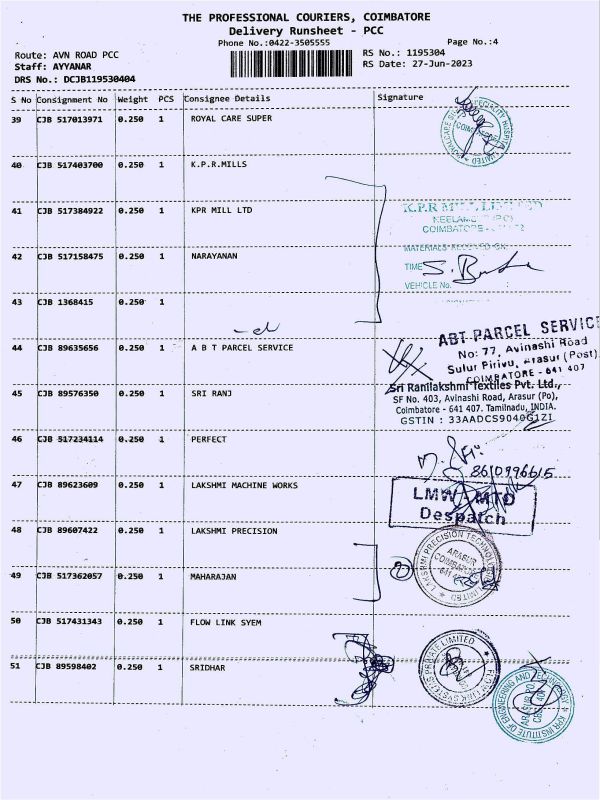 THE PROFESSIONAL COURIERS, COIMBATORE
Delivery Runsheet - PCC
Phone No.:0422-3505555 Page No.:4
Route: AVN ROAD PCC RS No.: 1195304
Staff: AYYANAR RS Date: 27-Jun-2023
DRS No.: DCJB119530404
S No Consignment No Weight PCS Consignee Details Signature
39 CJB 517013971 0.250 1 ROYAL CARE SUPER
40 CJB 517403700 0.250 1 K.P.R.MILLS
41 CJB 517384922 0.250 1 KPR MILL LTD
K.P.R MILL LIMITED
COIMBATORE
MATERIALS RECEIVED
42 CJB 517158475 0.250 1 NARAYANAN
TIME
VEHICLE No.
43 CJB 1368415 0.250 1
44 CJB 89635656 0.250 1 A B T PARCEL SERVICE
ABT PARCEL SERVICE
No: 77, Avinashi Road
Sulur Pirivu, Arasur (Post)
COIMBATORE - 641 407
45 CJB 89576350 0.250 1 SRI RANJ
Sri Ranilakshmi Textiles Pvt. Ltd.,
SF No. 403, Avinashi Road, Arasur (Po),
Coimbatore - 641 407. Tamilnadu, INDIA.
GSTIN : 33AADCS9040G1ZI
46 CJB 517234114 0.250 1 PERFECT
8610996615
47 CJB 89623609 0.250 1 LAKSHMI MACHINE WORKS
LMW - MTD
Despatch
48 CJB 89607422 0.250 1 LAKSHMI PRECISION
LAKSHMI PRECISION TECHNOLOGIES LIMITED
ARASUR
COIMBATORE
641
49 CJB 517362057 0.250 1 MAHARAJAN
2
50 CJB 517431343 0.250 1 FLOW LINK SYEM
51 CJB 89598402 0.250 1 SRIDHAR
KPR INSTITUTE OF ENGINEERING AND TECHNOLOGY
ARASUR PO
CBE